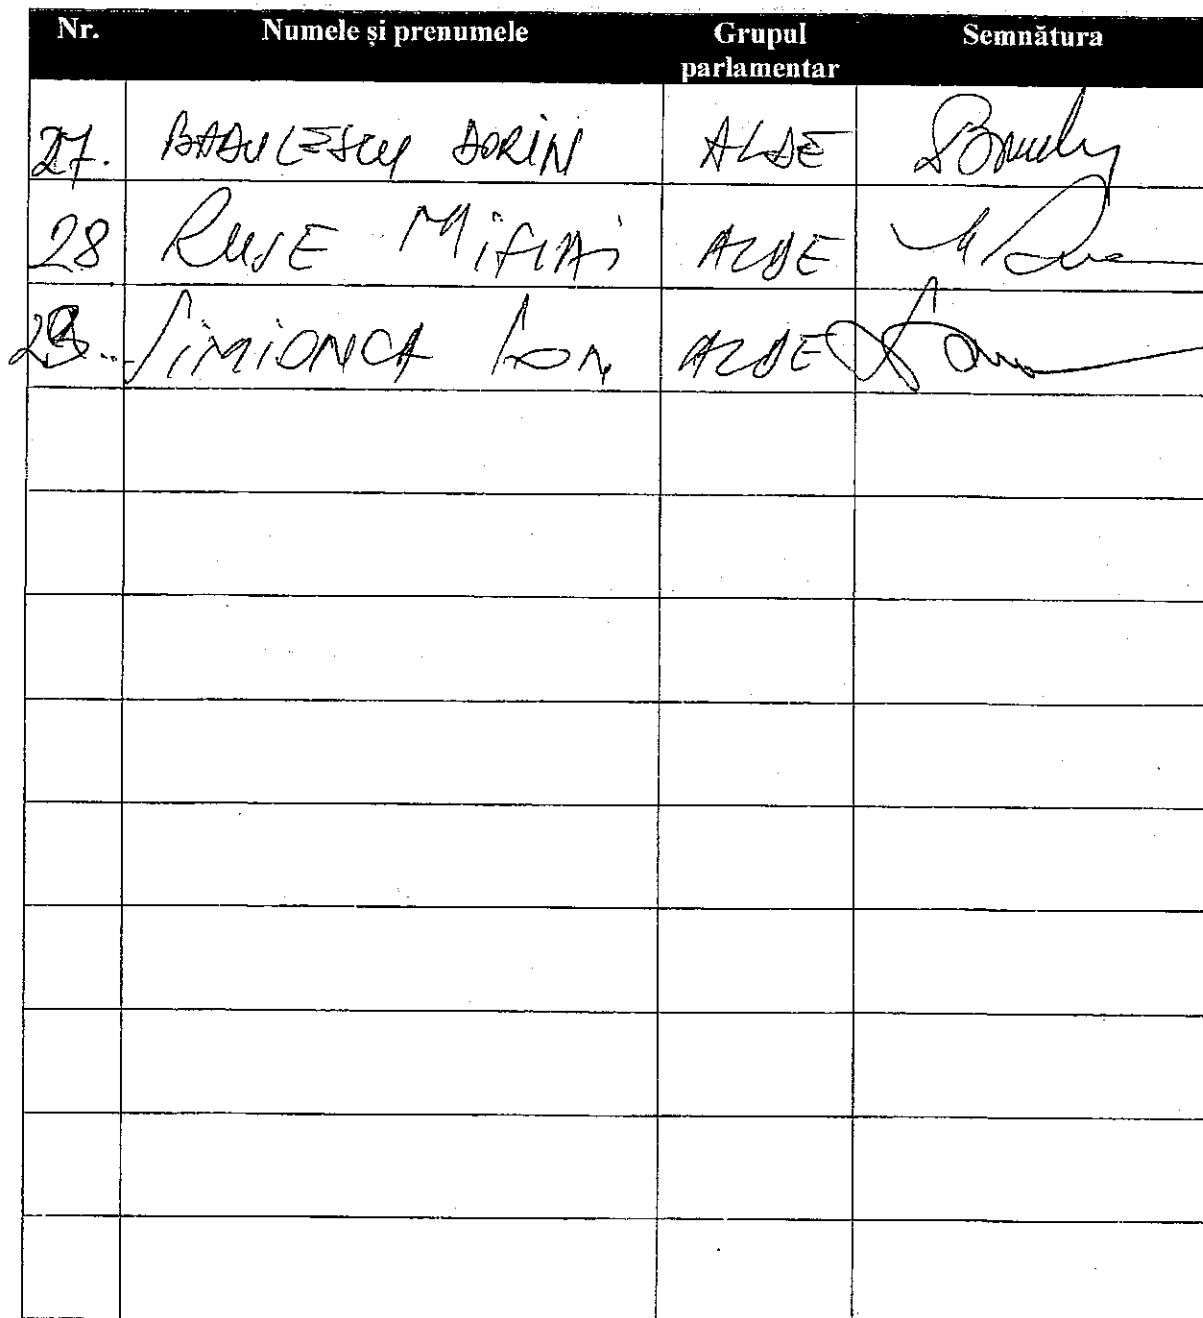 Nr. Numele și prenumele Grupul parlamentar Semnătura
27. BĂDULESCU DORIN ALDE
28 RUSE MiHAi ALDE
29. SiMiONCA Ion ALDE